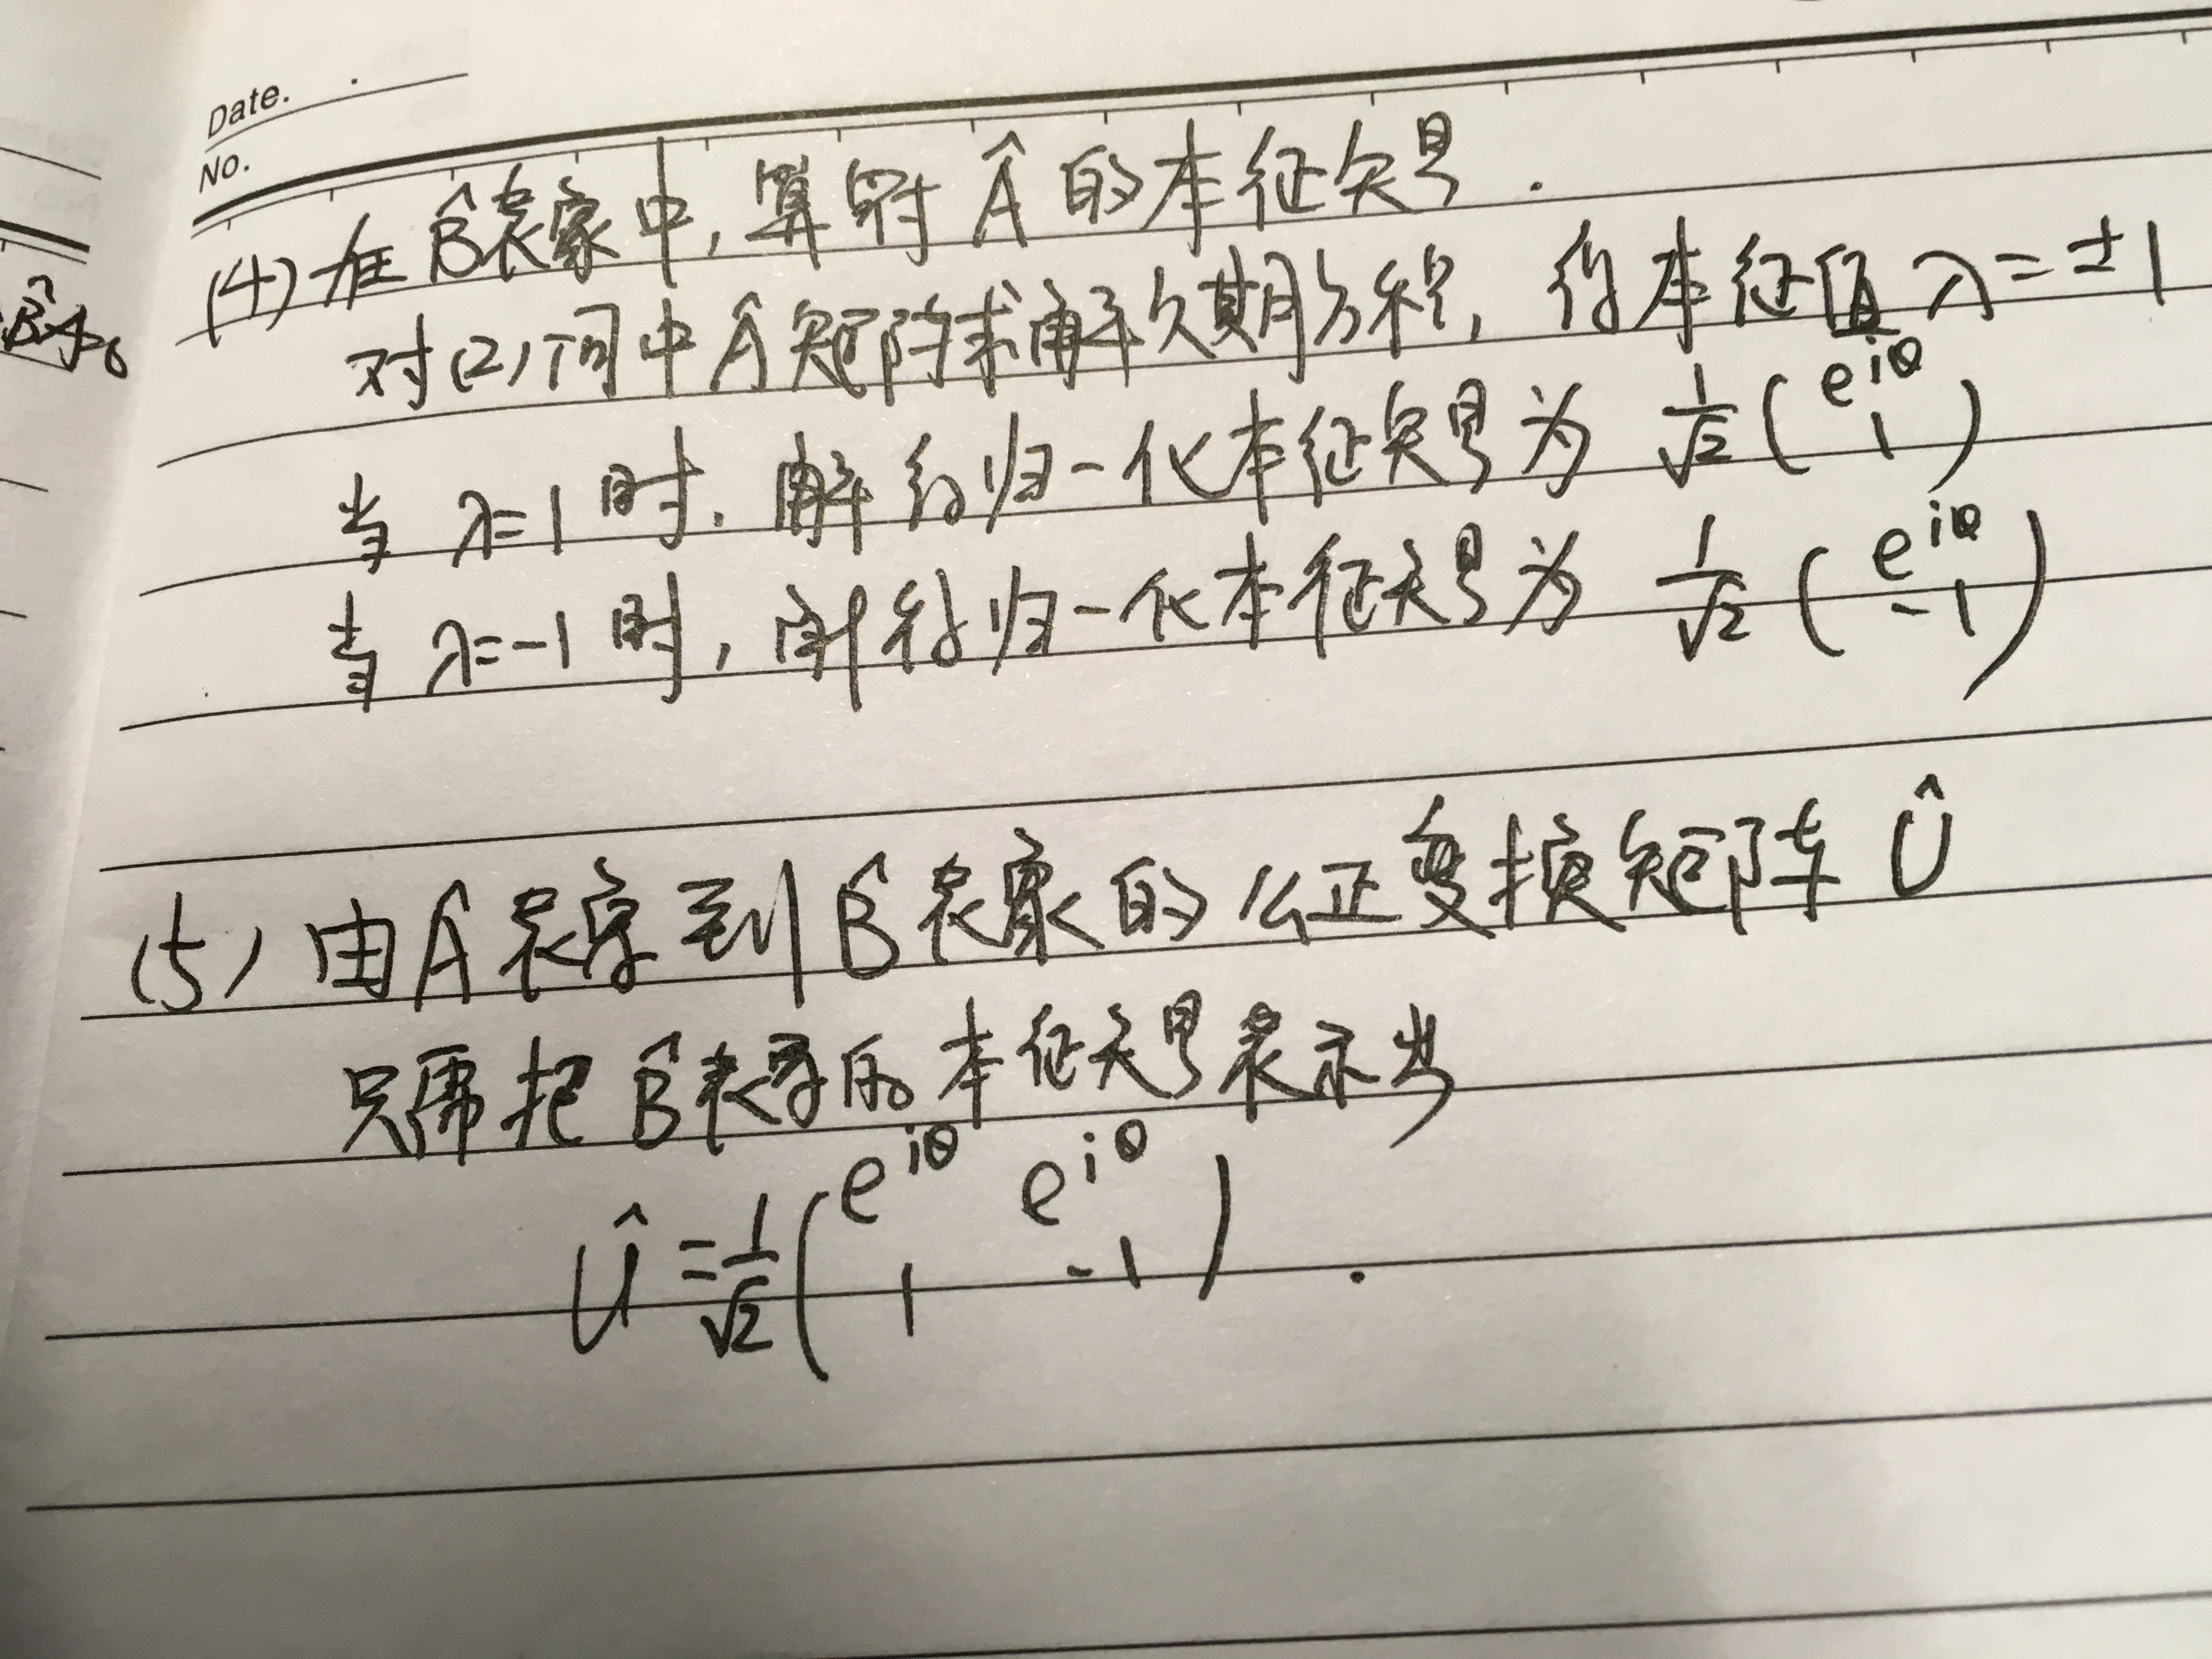 Date.
No.
(4) 在 B̂表象中, 算符 Â 的本征矢是.
对(2)问中 Â 矩阵求解久期方程, 得本征值 λ=±1
当 λ=1 时. 解得归一化本征矢是为 1/√2 ( e^{iθ} 1 )
当 λ=-1 时, 解得归一化本征矢是为 1/√2 ( e^{iθ} -1 )
(5) 由 Â 表象到 B̂ 表象的幺正变换矩阵 Û
只需把 B̂ 表象的本征矢是表示出
Û = 1/√2 ( e^{iθ} e^{iθ} 1 -1 ) .